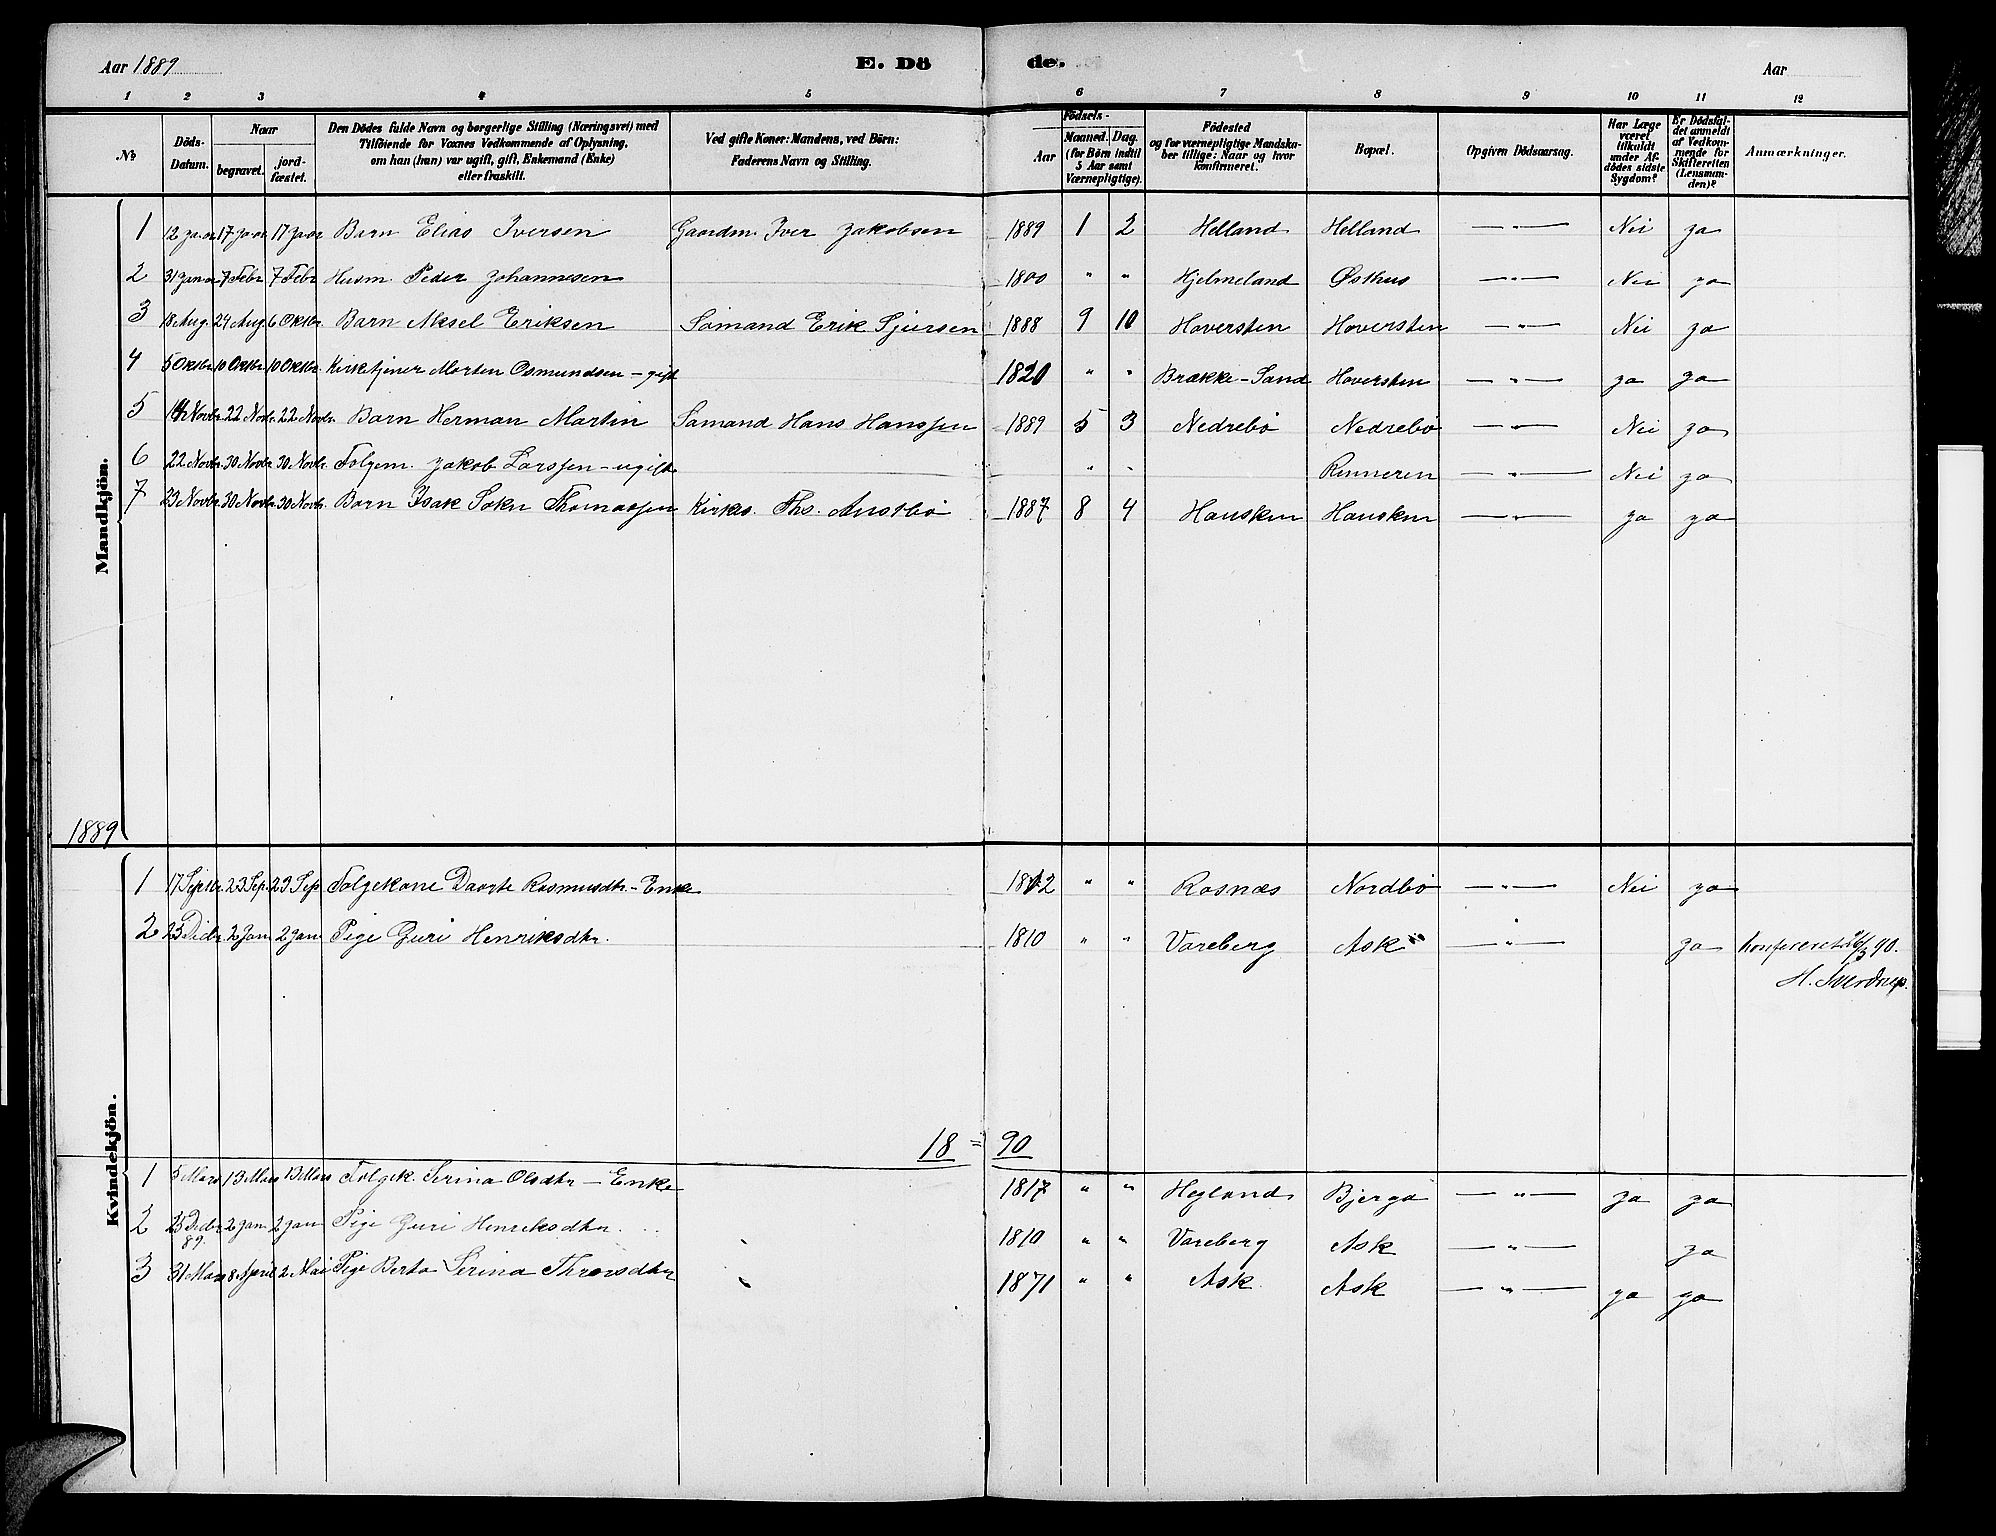 Aar 1889 E. Dö de. Aar
1 2 3 4 5 6 7 8 9 10 11 12
№ Döds-Datum. Naar begravet. jord-fæstet. Den Dödes fulde Navn og borgerlige Stilling (Næringsvei) med Tilföiende for Voxnes Vedkommende af Oplysning, om han (hun) var ugift, gift, Enkemand (Enke) eller fraskilt. Ved gifte Koner: Mandens, ved Börn: Faderens Navn og Stilling. Födsels- Aar Maaned. Dag. (for Börn indtil 5 Aar samt Værnepligtige). Födested og for værnepligtige Mandskaber tillige: Naar og hvor konfirmeret. Bopæl. Opgiven Dödsaarsag. Har Læge været tilkaldt under Afdödes sidste Sygdom? Er Dödsfaldet anmeldt af Vedkommende for Skifteretten (Lensmanden)? Anmærkninger.
Mandkjön.
1 12 Januar 17 Januar 17 Januar Barn Elias Iversen Gaardm. Iver Jakobsen 1889 1 2 Helland Helland — " — Nei Ja
2 31 Januar 7 Febr 7 Febr Husm. Peder Johannesen 1800 " " Hjelmeland Østhus — " — Nei Ja
3 18 Aug. 24 Aug. 6 Oktbr. Barn Aksel Eriksen Sömand Erik Sjursen 1888 9 10 Hoversten Hoversten — " — Nei Ja
4 5 Oktbr. 10 Oktbr. 10 Oktbr. Kirketjener Morten Osmundsen - gift 1820 " " Brække-Sand Hoversten — " — Ja Ja
5 Novbr. 22 Novbr. 22 Novbr. Barn Herman Martin Sömand Hans Hanssen 1889 5 3 Nedrebö Nedrebö — " — Nei Ja
6 22 Novbr. 30 Novbr. 30 Novbr. Folgem. Jakob Larssen - ugift " " Renneren — " — Nei Ja
7 23 Novbr. 30 Novbr. 30 Novbr. Barn Isak Thomassen Kirkes. Ths. Austbö 1887 8 4 Hausken Hausken — " — Ja Ja
1889
Kvindekjön.
1 17 Septbr. 23 Sep. 29 Sep Folgekone Daarte Rasmusdtr. - Enke 1812 " " Rosnæs Nordbö — " — Nei Ja
2 25 Decbr. 2 Jan 2 Jan Pige Guri Henriksdtr. 1810 " " Voreberg Ask — " — Ja Konfereret 26/3 90.
H. Sverdrup.
18 = 90
1 5 Mars 13 Mars 13 Mars Folgek. Serina Olsdtr - Enke 1817 " " Hegland Bjerga — " — Ja Ja
2 25 Decbr 89. 2 Jan 2 Jan Pige Guri Henriksdtr. 1810 " " Voreberg Ask — " — Ja
3 31 Mars 8 April 2 Mai Pige Berta Serina Thorsdtr 1871 " " Ask Ask — " — Ja Ja